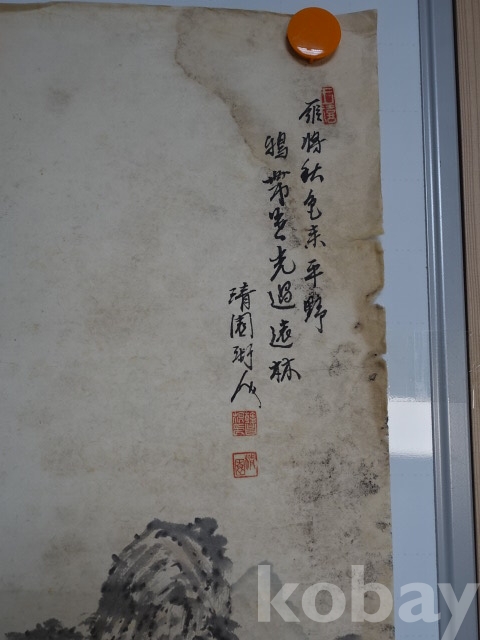 雁將秋色來平野
鴉帶光過遠林
園
kobay